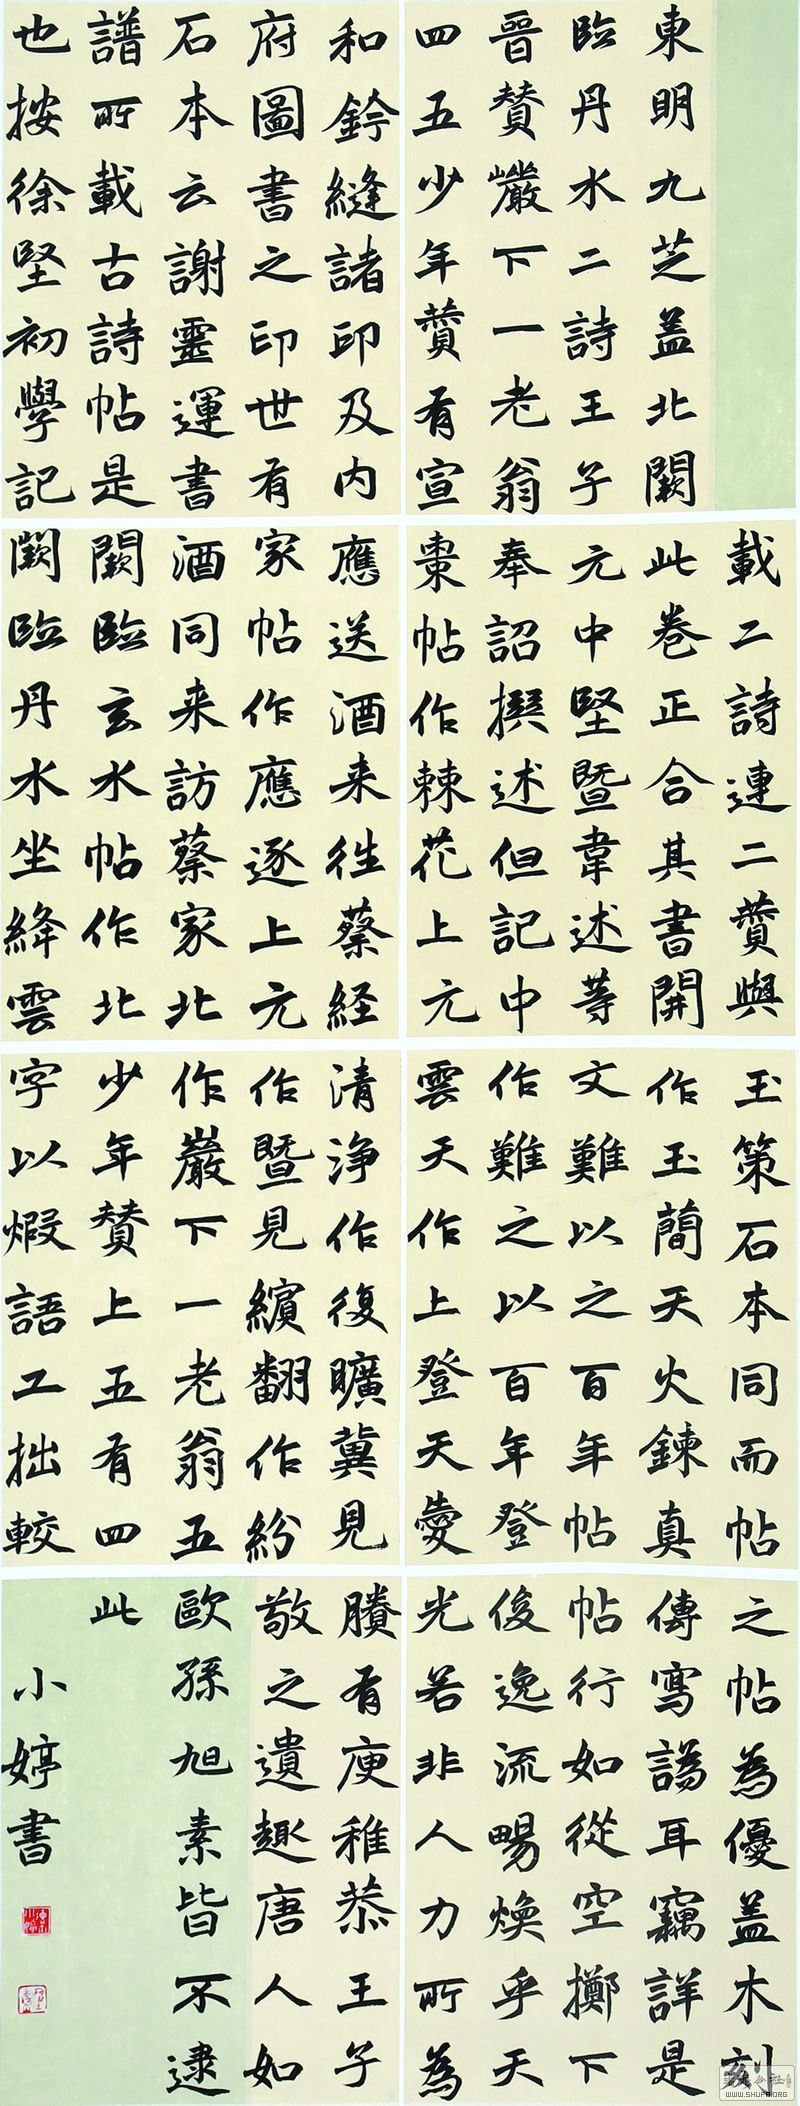 東明九芝盖北闕
臨丹水二詩王子
晉贊巖下一老翁
四五少年贊有宣
和鈐縫諸印及内
府圖書之印世有
石本云謝靈運書
譜所載古詩帖是
也按徐堅初學記
載二詩連二贊與
此卷正合其書開
元中堅暨韋述等
奉詔撰述但記中
棗帖作棘花上元
應送酒来往蔡経
家帖作應逐上元
酒同来訪蔡家北
闕臨玄水帖作北
闕臨丹水坐絳雲
玉策石本同而帖
作玉蕳天火鍊真
文難以之百年帖
作難之以百年登
雲天作上登天夐
清浄作復曠冀見
作暨見繽翻作紛
作巖下一老翁五
少年贊上五有四
字以煆語工拙較
之帖為優盖木刻
傳寫譌耳竊詳是
帖行如從空擲下
俊逸流暢煥乎天
光若非人力所為
賸有庾稚恭王子
敬之遺趣唐人如
歐孫旭素皆不逮
此
小婷書
WWW.SHUFA.ORG